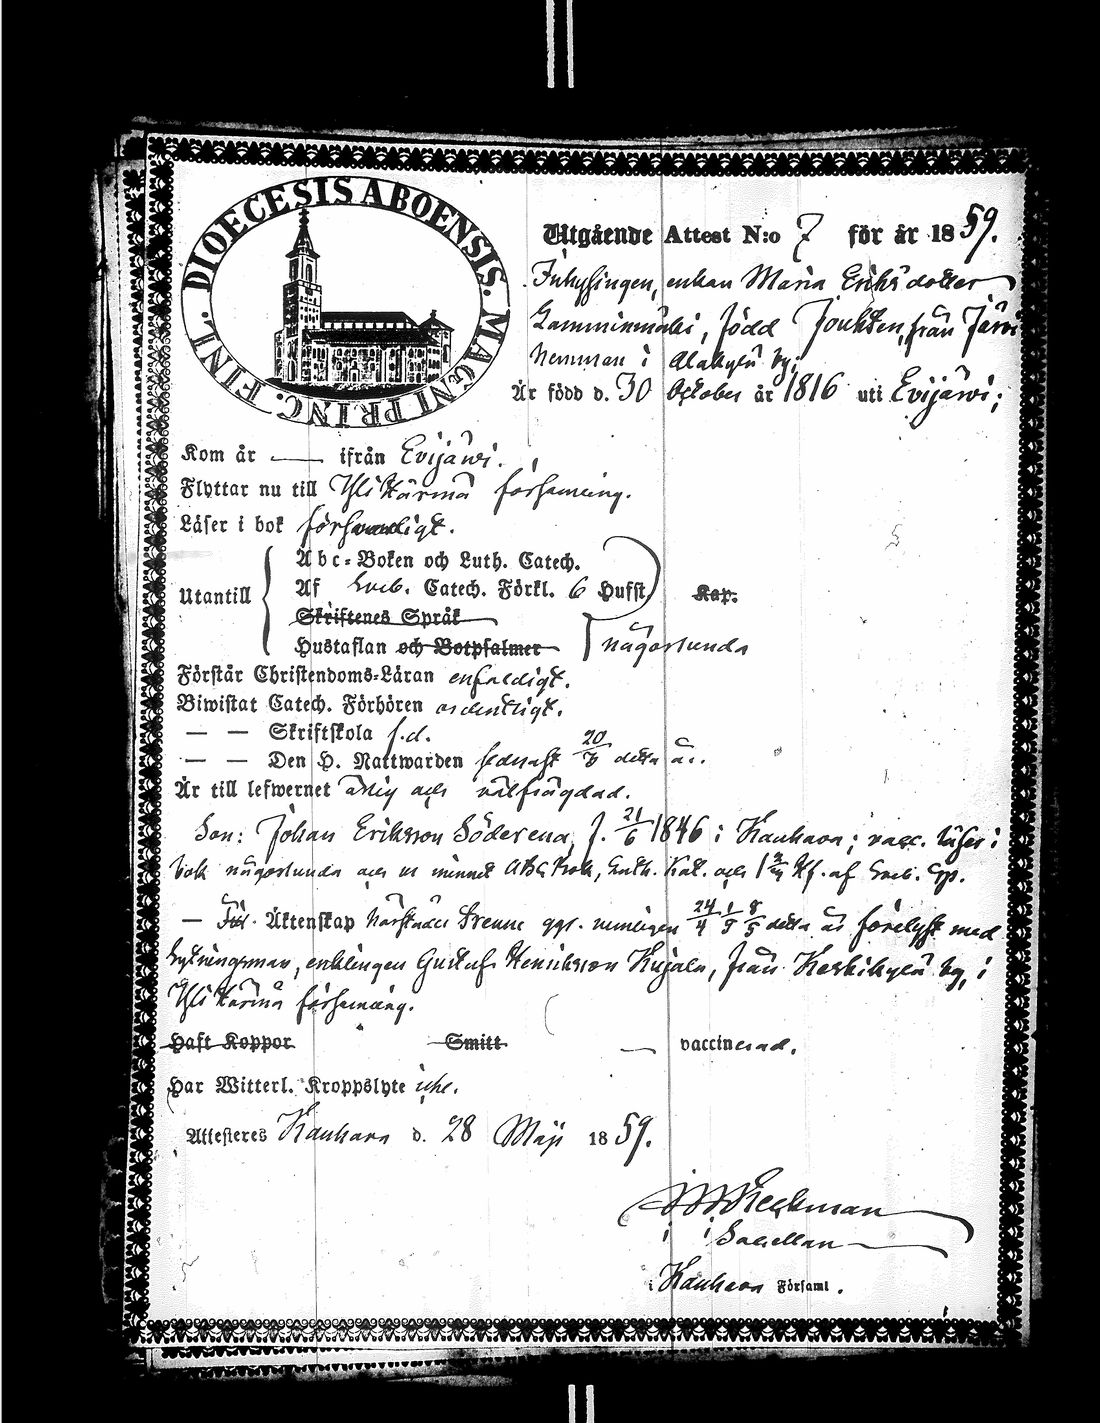 DIOECESIS ABOENSIS. MAGNI PRINC. FINL.
Utgående Attest N:o 7 för år 1859.
Inhysingen, enkan Maria Eriksdotter
född från
hemman i Alakylä by;
Är född d. 30 October år 1816 uti Evijärvi;
Kom år — ifrån Evijärvi.
Flyttar nu till Yli Härmä församling.
Läser i bok försvarligt.
Abc-Boken och Luth. Catech.
Utantill Af Sveb. Catech. Förkl. 6 Hufst. Kap.
Skriftenes Språk
Hustaflan och Botpsalmer någorlunda
Förstår Christendoms-Läran enfaldigt.
Biwistat Catech. Förhören ordentligt.
— — Skriftskola f.d.
— — Den H. Nattwarden sednast 20/3 detta år.
Är till lefwernet ärlig och välfrägdad.
Son: Johan Eriksson f. 21/6 1846 i Kauhava; vacc. läser i
bok någorlunda och ur minnet Abc bok, Luth. Kat. och af Sveb.
— Till Äktenskap trenne ggr. nemligen 24/4 1/5 8/5 detta år förelyst med
enklingen Gustaf Henriksson Kujala, från Keskikylä by, i
Yli Härmä församling.
Haft Koppor Smitt — vaccinerad.
Har Witterl. Kroppslyte icke.
Attesteres Kauhava d. 28 Maji 1859.
Sacellan
i Kauhava Församl.